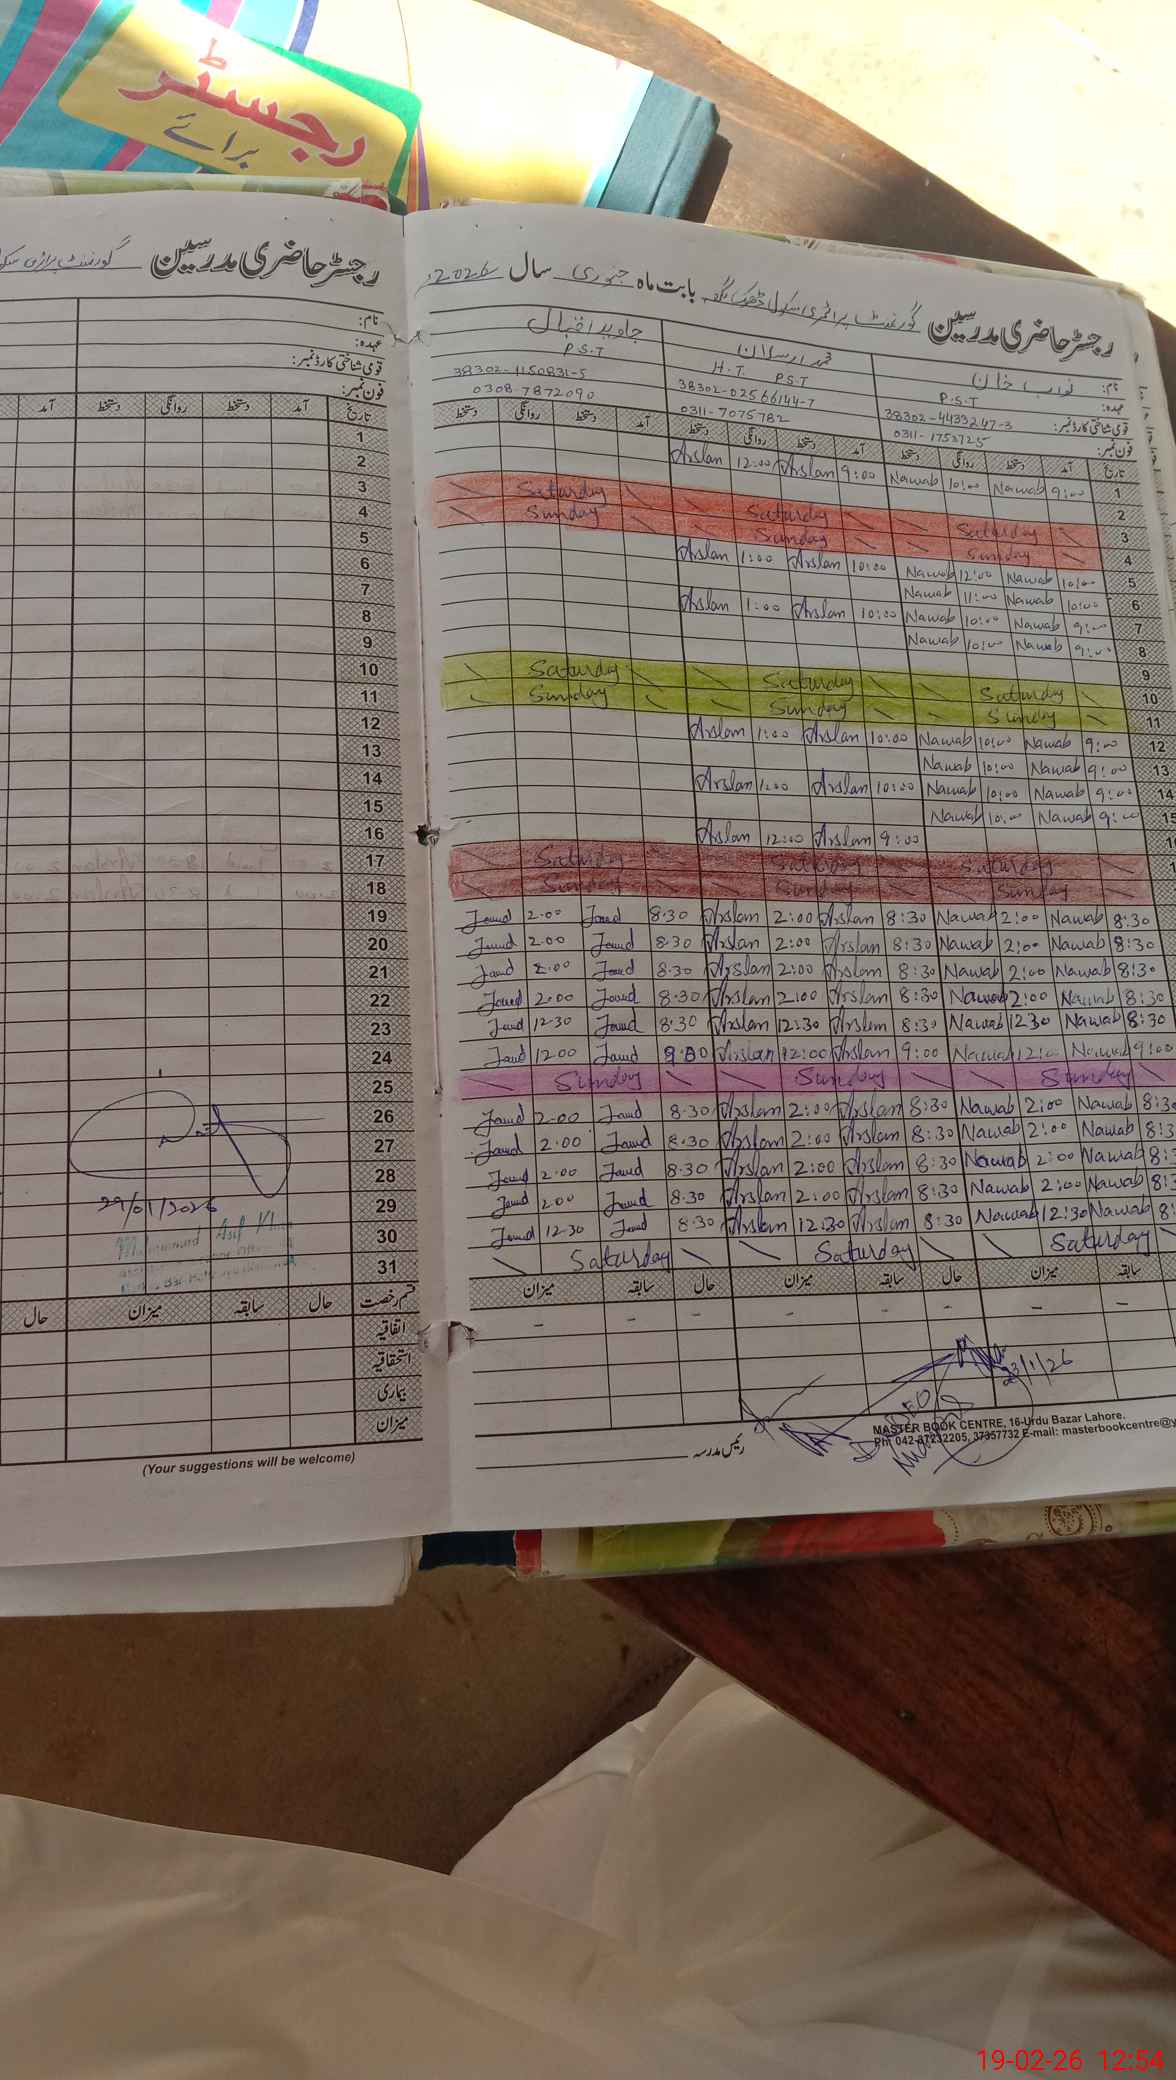 رجسٹر
برائے
رجسٹر حاضری مدرسین
نام:
عہدہ:
قومی شناختی کارڈ نمبر:
فون نمبر:
تاریخ آمد دستخط روانگی دستخط آمد
1
2
3
4
5
6
7
8
9
10
11
12
13
14
15
16
17
18
19
20
21
22
23
24
25
26
27
28
29
30
31
29/01/2026
Muhammad Asif Khan
قسم رخصت حال سابقہ میزان حال
اتفاقیہ
استحقاقیہ
بیماری
میزان
(Your suggestions will be welcome)
رجسٹر حاضری مدرسین گورنمنٹ پرائمری سکول بابت ماہ جنوری سال 2026ء
نام: نواب خان محمد ارسلان جاوید اقبال
عہدہ: P.S.T H.T. P.S.T P.S.T
قومی شناختی کارڈ نمبر: 38302-4433247-3 38302-02566144-7 38302-1150831-5
فون نمبر: 0311-1753725 0311-7075782 0308-7872090
تاریخ آمد دستخط روانگی دستخط آمد دستخط روانگی دستخط آمد دستخط روانگی دستخط
Arslan 12:00 Arslan 9:00 Nawab 10:00 Nawab 9:00 1
2
Saturday Saturday Saturday 3
Sunday Sunday Sunday 4
Arslan 1:00 Arslan 10:00 Nawab 12:00 Nawab 10:00 5
Nawab 11:00 Nawab 10:00 6
Arslan 1:00 Arslan 10:00 Nawab 10:00 Nawab 9:00 7
Nawab 10:00 Nawab 9:00 8
9
Saturday Saturday Saturday 10
Sunday Sunday Sunday 11
Arslan 1:00 Arslan 10:00 Nawab 10:00 Nawab 9:00 12
Nawab 10:00 Nawab 9:00 13
Arslan 1:00 Arslan 10:00 Nawab 10:00 Nawab 9:00 14
Nawab 10:00 Nawab 9:00 15
Arslan 12:00 Arslan 9:00
Saturday Saturday Saturday
Sunday Sunday Sunday
Javed 2.00 Javed 8.30 Arslan 2:00 Arslan 8:30 Nawab 2:00 Nawab 8:30
Javed 2.00 Javed 8.30 Arslan 2:00 Arslan 8:30 Nawab 2:00 Nawab 8:30
Javed 2.00 Javed 8.30 Arslan 2:00 Arslan 8:30 Nawab 2:00 Nawab 8:30
Javed 2.00 Javed 8.30 Arslan 2:00 Arslan 8:30 Nawab 2:00 Nawab 8:30
Javed 12.30 Javed 8.30 Arslan 12:30 Arslan 8:30 Nawab 12:30 Nawab 8:30
Javed 12.00 Javed 9.00 Arslan 12:00 Arslan 9:00 Nawab 12:00 Nawab 9:00
Sunday Sunday Sunday
Javed 2.00 Javed 8.30 Arslan 2:00 Arslan 8:30 Nawab 2:00 Nawab 8:30
Javed 2.00 Javed 8.30 Arslan 2:00 Arslan 8:30 Nawab 2:00 Nawab 8:3
Javed 2.00 Javed 8.30 Arslan 2:00 Arslan 8:30 Nawab 2:00 Nawab 8:3
Javed 2.00 Javed 8.30 Arslan 2:00 Arslan 8:30 Nawab 2:00 Nawab 8:3
Javed 12.30 Javed 8.30 Arslan 12:30 Arslan 8:30 Nawab 12:30 Nawab 8:
Saturday Saturday Saturday
سابقہ میزان حال سابقہ میزان حال سابقہ میزان
23/1/26
MASTER BOOK CENTRE, 16-Urdu Bazar Lahore.
Ph: 042-37232205, 37357732 E-mail: masterbookcentre@y
رئیس مدرسہ
19-02-26 12:54